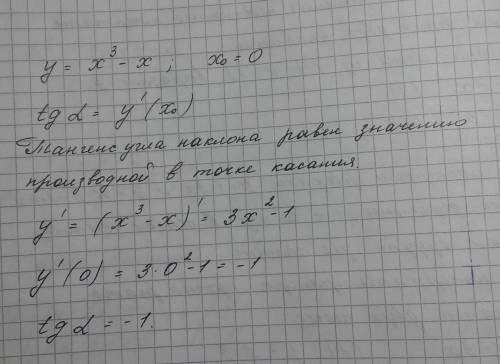 y = x³ - x ; x₀ = 0
tg α = y'(x₀)
Тангенс угла наклона равен значению
производной в точке касания.
y' = (x³ - x)' = 3x² - 1
y'(0) = 3·0² - 1 = -1
tg α = -1.